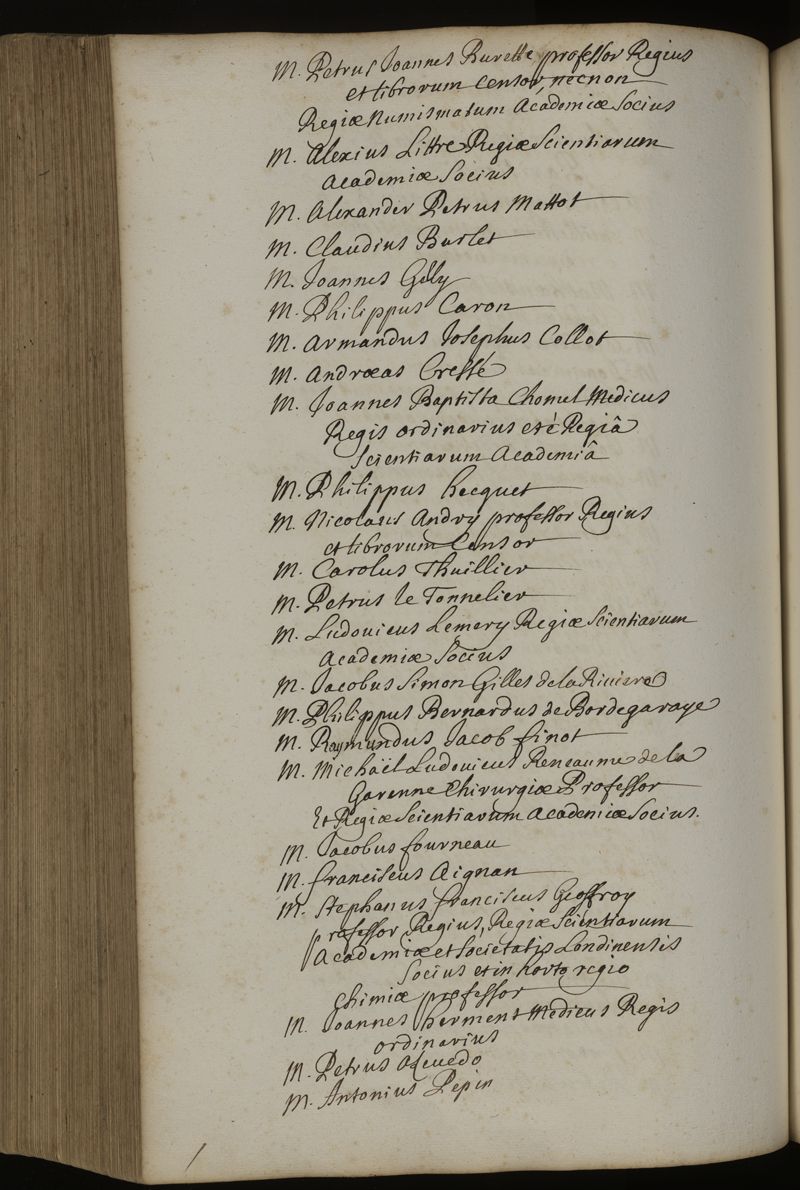 M. Petrus Joannes Burette professor Regius
et librorum censor, necnon
Regiæ Numismatum Academiæ Socius
M. Alexius Littre Regiæ Scientiarum
Academiæ Socius
M. Alexander Petrus Mattot
M. Claudius Burlet
M. Joannes Gelly
M. Philippus Caron
M. Armandus Josephus Collot
M. Andræas Cressé
M. Joannes Baptista Chomel Medicus
Regis ordinarius et è Regiâ
Scientiarum Academiâ
M. Philippus hecquet
M. Nicolaus Andry professor Regius
et librorum Censor
M. Carolus Thuillier
M. Petrus le Tonnelier
M. Ludovicus Lemery Regiæ Scientiarum
Academiæ Socius
M. Jacobus Simon Gilles de la Riviere
M. Philippus Bernardus de Bordegaraye
M. Raymundus Jacob finot
M. Michaël Ludovicus Reneaume de la
Garenne Chirurgiæ Professor
Et Regiæ Scientiarum Academiæ Socius.
M. Jacobus fourneau
M. franciscus Aignan
M. Stephanus franciscus Geoffroy
professor Regius, Regiæ Scientiarum
Academiæ et Societatis Londinensis
Socius et in horto regio
Chimiæ professor
M. Joannes herment Medicus Regis
ordinarius
M. Petrus Azevedo
M. Antonius Pepin